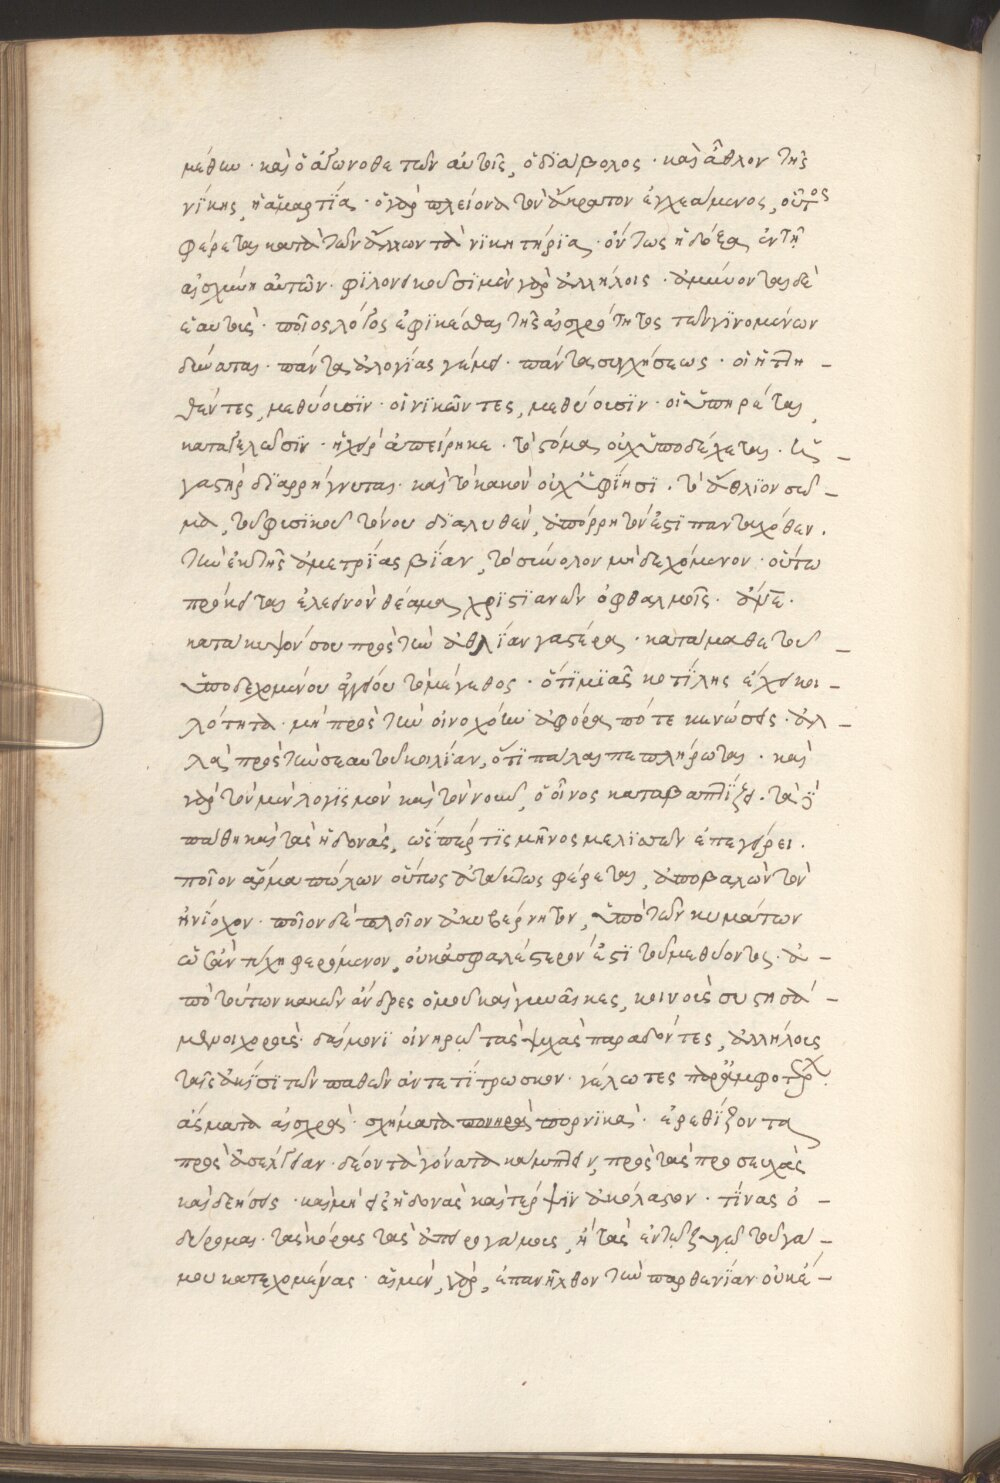 μέθην · καὶ ὁ ἀγωνοθετῶν αὐτοῖς, ὁ διάβολος · καὶ ἆθλον τῆς
νίκης, ἡ ἁμαρτία · ὁ γὰρ πλείονα τὸν ἄκρατον ἐγχεάμενος, οὗτος
φέρεται κατὰ τῶν ἄλλων τὰ νικητήρια · ὄντως ἡ δόξα ἐν τῇ
αἰσχύνῃ αὐτῶν · φιλονεικοῦσι μὲν γὰρ ἀλλήλοις · ἀμύνονται δὲ
ἑαυτοὺς · ποῖος λόγος ἐφικέσθαι τῆς αἰσχρότητος τῶν γινομένων
δύναται · πάντα ἀλογίας γέμει · πάντα συγχήσεως · οἱ ἡττη –
θέντες, μεθύουσιν · οἱ νικῶντες, μεθύουσιν · οἱ ὑπηρέται,
καταγελῶσιν · ἡ χεὶρ ἀπείρηκε · τὸ στόμα οὐχ ὑποδέχεται · ἡ –
γαστὴρ διαρρήγνυται · καὶ τὸ κακὸν οὐχ ὑφίησι · τὸ ἄθλιον σῶ –
μα, τοῦ φυσικοῦ τόνου διαλυθὲν, ἀπόρρυτόν ἐστι πανταχόθεν ·
τὴν ἐκ τῆς ἀμετρίας βίαν, τὸ σύνολον μὴ δεχόμενον · οὕτω
πρόκειται ἐλεεινὸν θέαμα χριστιανῶν ὀφθαλμοῖς · ἄνε ·
κατάκυψόν σου πρὸς τὴν ἀθλίαν γαστέρα · κατάμαθε τοῦ –
ὑποδεχομένου ἀγγείου τὸ μέγεθος · ὅτι μιᾶς κοτίλης ἔχει κοι –
λότητα · μὴ πρὸς τὴν οἰνοχόην ἀφόρα πότε κενώσεις · ἀλ –
λὰ πρὸς τὴν σεαυτοῦ κοιλίαν, ὅτι πάλαι πεπλήρωται · καὶ
γὰρ τὸν μὲν λογισμὸν καὶ τὸν νοῦν, ὁ οἶνος καταβαπτίζει · τὰ δὲ
πάθη καὶ τὰς ἡδονὰς, ὥσπέρ τις μῆνος μελισσῶν ἐπεγείρει ·
ποῖον ἅρμα πώλων οὕτως ἀτάκτως φέρεται, ἀποβαλὼν τὸν
ἡνίοχον · ποῖον δὲ πλοῖον ἀκυβέρνητον, ὑπὸ τῶν κυμάτων
ὡς ἂν τύχῃ φερόμενον, οὐκ ἀσφαλέστερόν ἐστι τοῦ μεθύοντος · ἀ –
πὸ τούτων κακῶν ἄνδρες ὁμοῦ καὶ γυναῖκες, κοινοὺς συστησά –
μενοι χοροὺς · δαίμονι οἰνηρῷ τὰς ψυχὰς παραδόντες, ἀλλήλους
ταῖς ἀκίσι τῶν παθῶν ἀντετίτρωσκον · γέλωτες παρ' ἀμφοτέρων ·
ᾄσματα αἰσχρὰ · σχήματα πορνικὰ · ἐρεθίζοντα
πρὸς ἀσέλγειαν · δέον τὰ γόνατα κάμπτειν, πρὸς τὰς προσευχὰς
καὶ δεήσεις · καὶ μὴ εἰς ἡδονὰς καὶ τέρψιν ἀκόλαστον · τίνας ὀ –
δύρομαι · τὰς κόρας τὰς ἀπειρογάμους, ἢ τὰς ἐν τῷ ζυγῷ τοῦ γά –
μου κατεχομένας · αἱ μὲν, γὰρ, ἐπανῆλθον τὴν παρθενίαν οὐκέ –